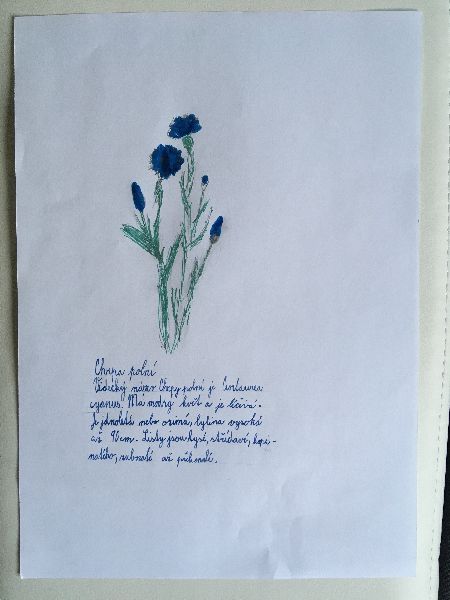 Chrpa polní
Vědecký název Chrpy polní je Centaurea
cyanus. Má modrý květ a je léčivá.
Je jednoletá nebo ozimá, bylina vysoká
až 90cm. Listy jsou kysé, střídavé, kopi-
natého, zubnaté až